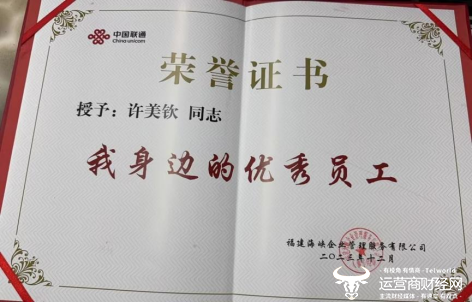 中国联通
China unicom
荣誉证书
授予：许美钦 同志
我身边的优秀员工
福建海峡企业管理服务有限公司
二〇二三年十二月
有视角 有侠商 - Telworld
运营商财经网